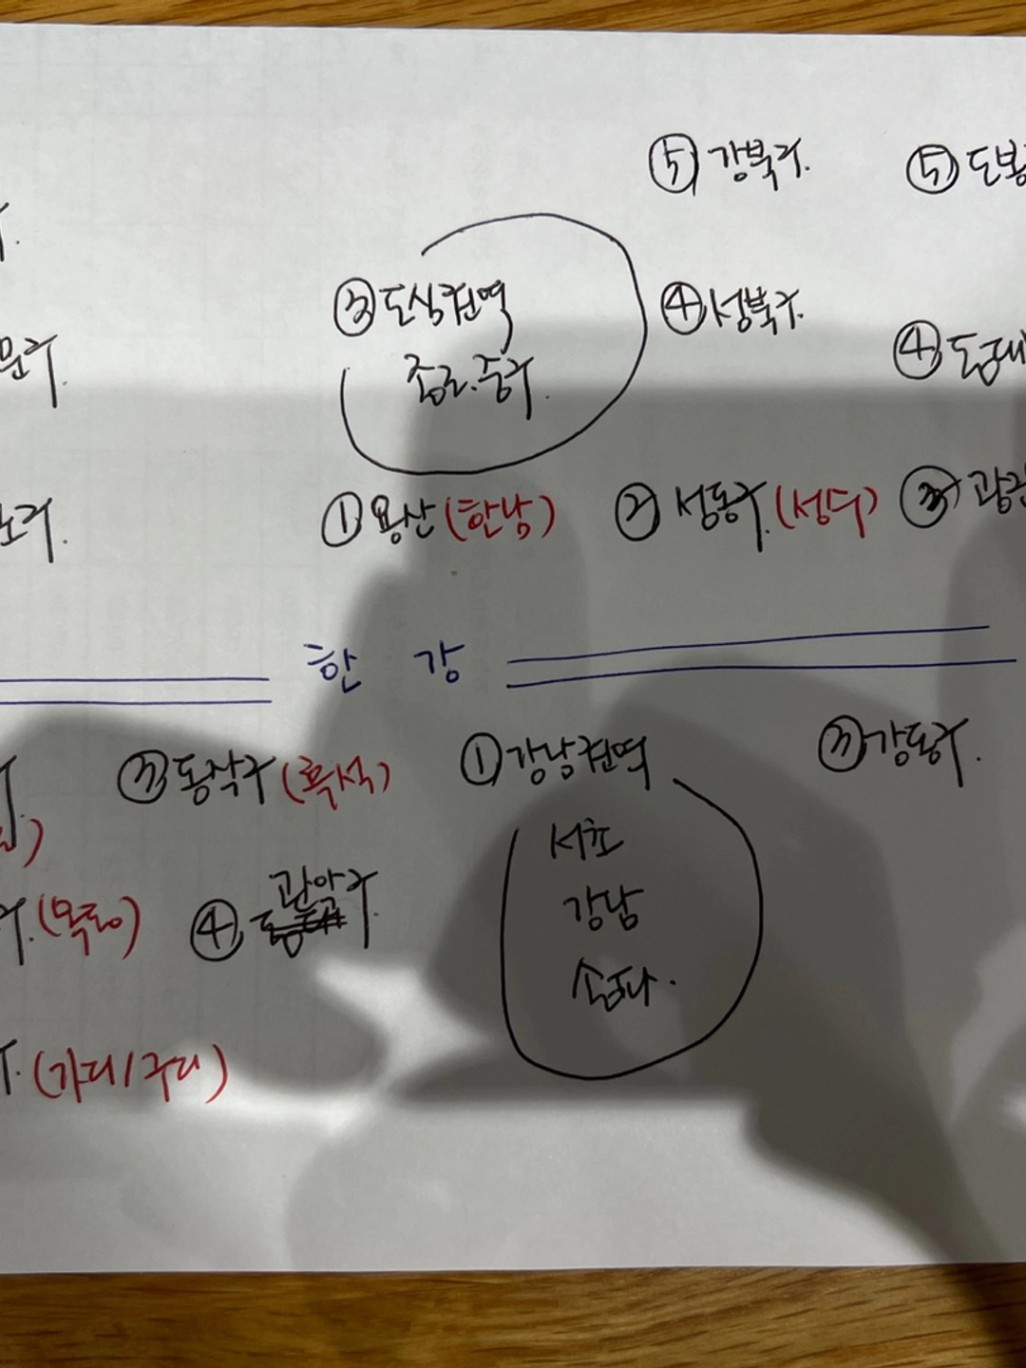 ⑤ 강북구. ⑤ 도봉
구.
③ 도심권역 ④ 성북구.
종로.중구. ④ 동대
문구.
① 용산 (한남) ② 성동구.(성수) ③ 광진
한 강
③ 동작구 (흑석) ① 강남권역 ③ 강동구.
서초
구.(목동) ④ 관악구. 강남
송파.
(가디/구디)